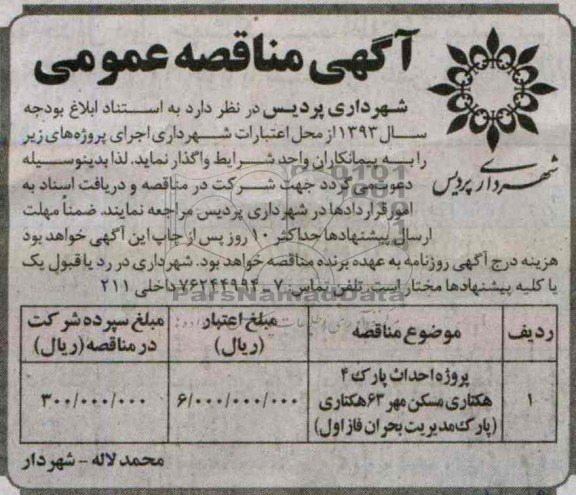 آگهی مناقصه عمومی
شهرداری پردیس
شهرداری پردیس در نظر دارد به استناد ابلاغ بودجه
سال ۱۳۹۳ از محل اعتبارات شهرداری اجرای پروژه‌های زیر
را به پیمانکاران واجد شرایط واگذار نماید. لذا بدینوسیله
دعوت می گردد جهت شرکت در مناقصه و دریافت اسناد به
امور قراردادها در شهرداری پردیس مراجعه نمایند. ضمناً مهلت
ارسال پیشنهادها حداکثر ۱۰ روز پس از چاپ این آگهی خواهد بود
هزینه درج آگهی روزنامه به عهده برنده مناقصه خواهد بود. شهرداری در رد یا قبول یک
یا کلیه پیشنهادها مختار است. تلفن تماس: ۷-۷۶۲۴۴۹۹۴ داخلی ۲۱۱
ParsNamadData
ردیف موضوع مناقصه مبلغ اعتبار (ریال) مبلغ سپرده شرکت در مناقصه (ریال)
۱ پروژه احداث پارک ۴ هکتاری مسکن مهر ۶۳ هکتاری (پارک مدیریت بحران فاز اول) ۶/۰۰۰/۰۰۰/۰۰۰ ۳۰۰/۰۰۰/۰۰۰
محمد لاله - شهردار